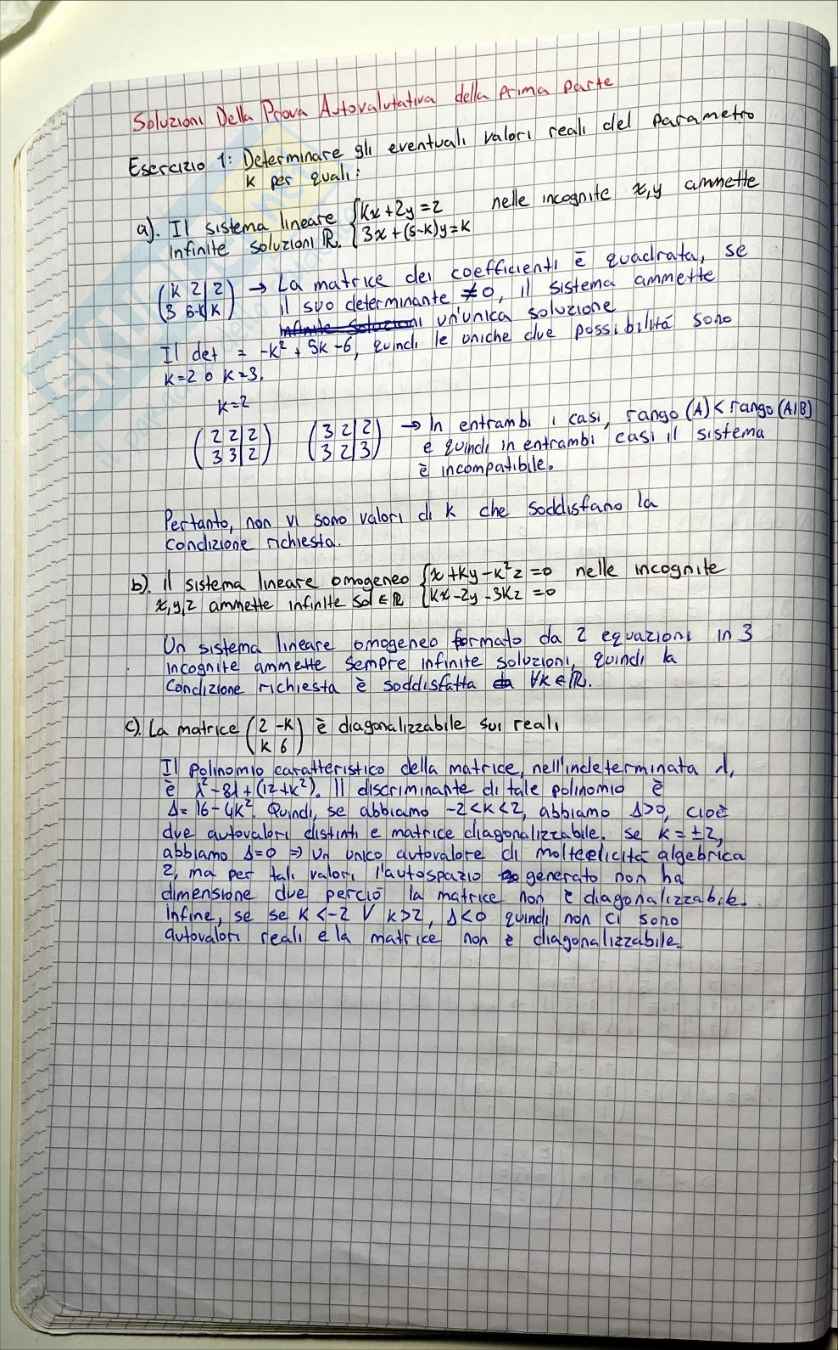 Soluzioni Della Prova Autovalutativa della prima parte
Esercizio 1: Determinare gli eventuali valori reali del parametro
k per quali:
a). Il sistema lineare { kx + 2y = 2 nelle incognite x,y ammette
infinite soluzioni ℝ. { 3x + (5-k)y = k
( k 2 | 2 ) → La matrice dei coefficienti è quadrata, se
( 3 5-k | k ) il suo determinante ≠ 0, il sistema ammette
infinite soluzioni un'unica soluzione
Il det = -k² + 5k - 6, quindi le uniche due possibilitá sono
k=2 o k=3.
k=2
( 2 2 | 2 ) ( 3 2 | 2 ) → In entrambi i casi, rango (A) < rango (A|B)
( 3 3 | 2 ) ( 3 2 | 3 ) e quindi in entrambi casi il sistema
è incompatibile.
Pertanto, non vi sono valori di k che soddisfano la
condizione richiesta.
b). il sistema lineare omogeneo { x + ky - k²z = 0 nelle incognite
x,y,z ammette infinite sol ∈ ℝ { kx - 2y - 3kz = 0
Un sistema lineare omogeneo formato da 2 equazioni in 3
incognite ammette sempre infinite soluzioni, quindi la
condizione richiesta è soddisfatta da ∀k∈ℝ.
c). La matrice ( 2 -k ) è diagonalizzabile sui reali
( k 6 )
Il polinomio caratteristico della matrice, nell'indeterminata λ,
è λ² - 8λ + (12+k²). Il discriminante di tale polinomio è
Δ = 16 - 4k². Quindi, se abbiamo -2<k<2, abbiamo Δ>0, cioè
due autovalori distinti e matrice diagonalizzabile. se k = ±2,
abbiamo Δ=0 ⇒ un unico autovalore di molteelicitá algebrica
2, ma per tali valori l'autospazio generato non ha
dimensione due perciò la matrice non è diagonalizzabile.
infine, se se k<-2 ∨ k>2, Δ<0 quindi non ci sono
autovalori reali e la matrice non è diagonalizzabile.